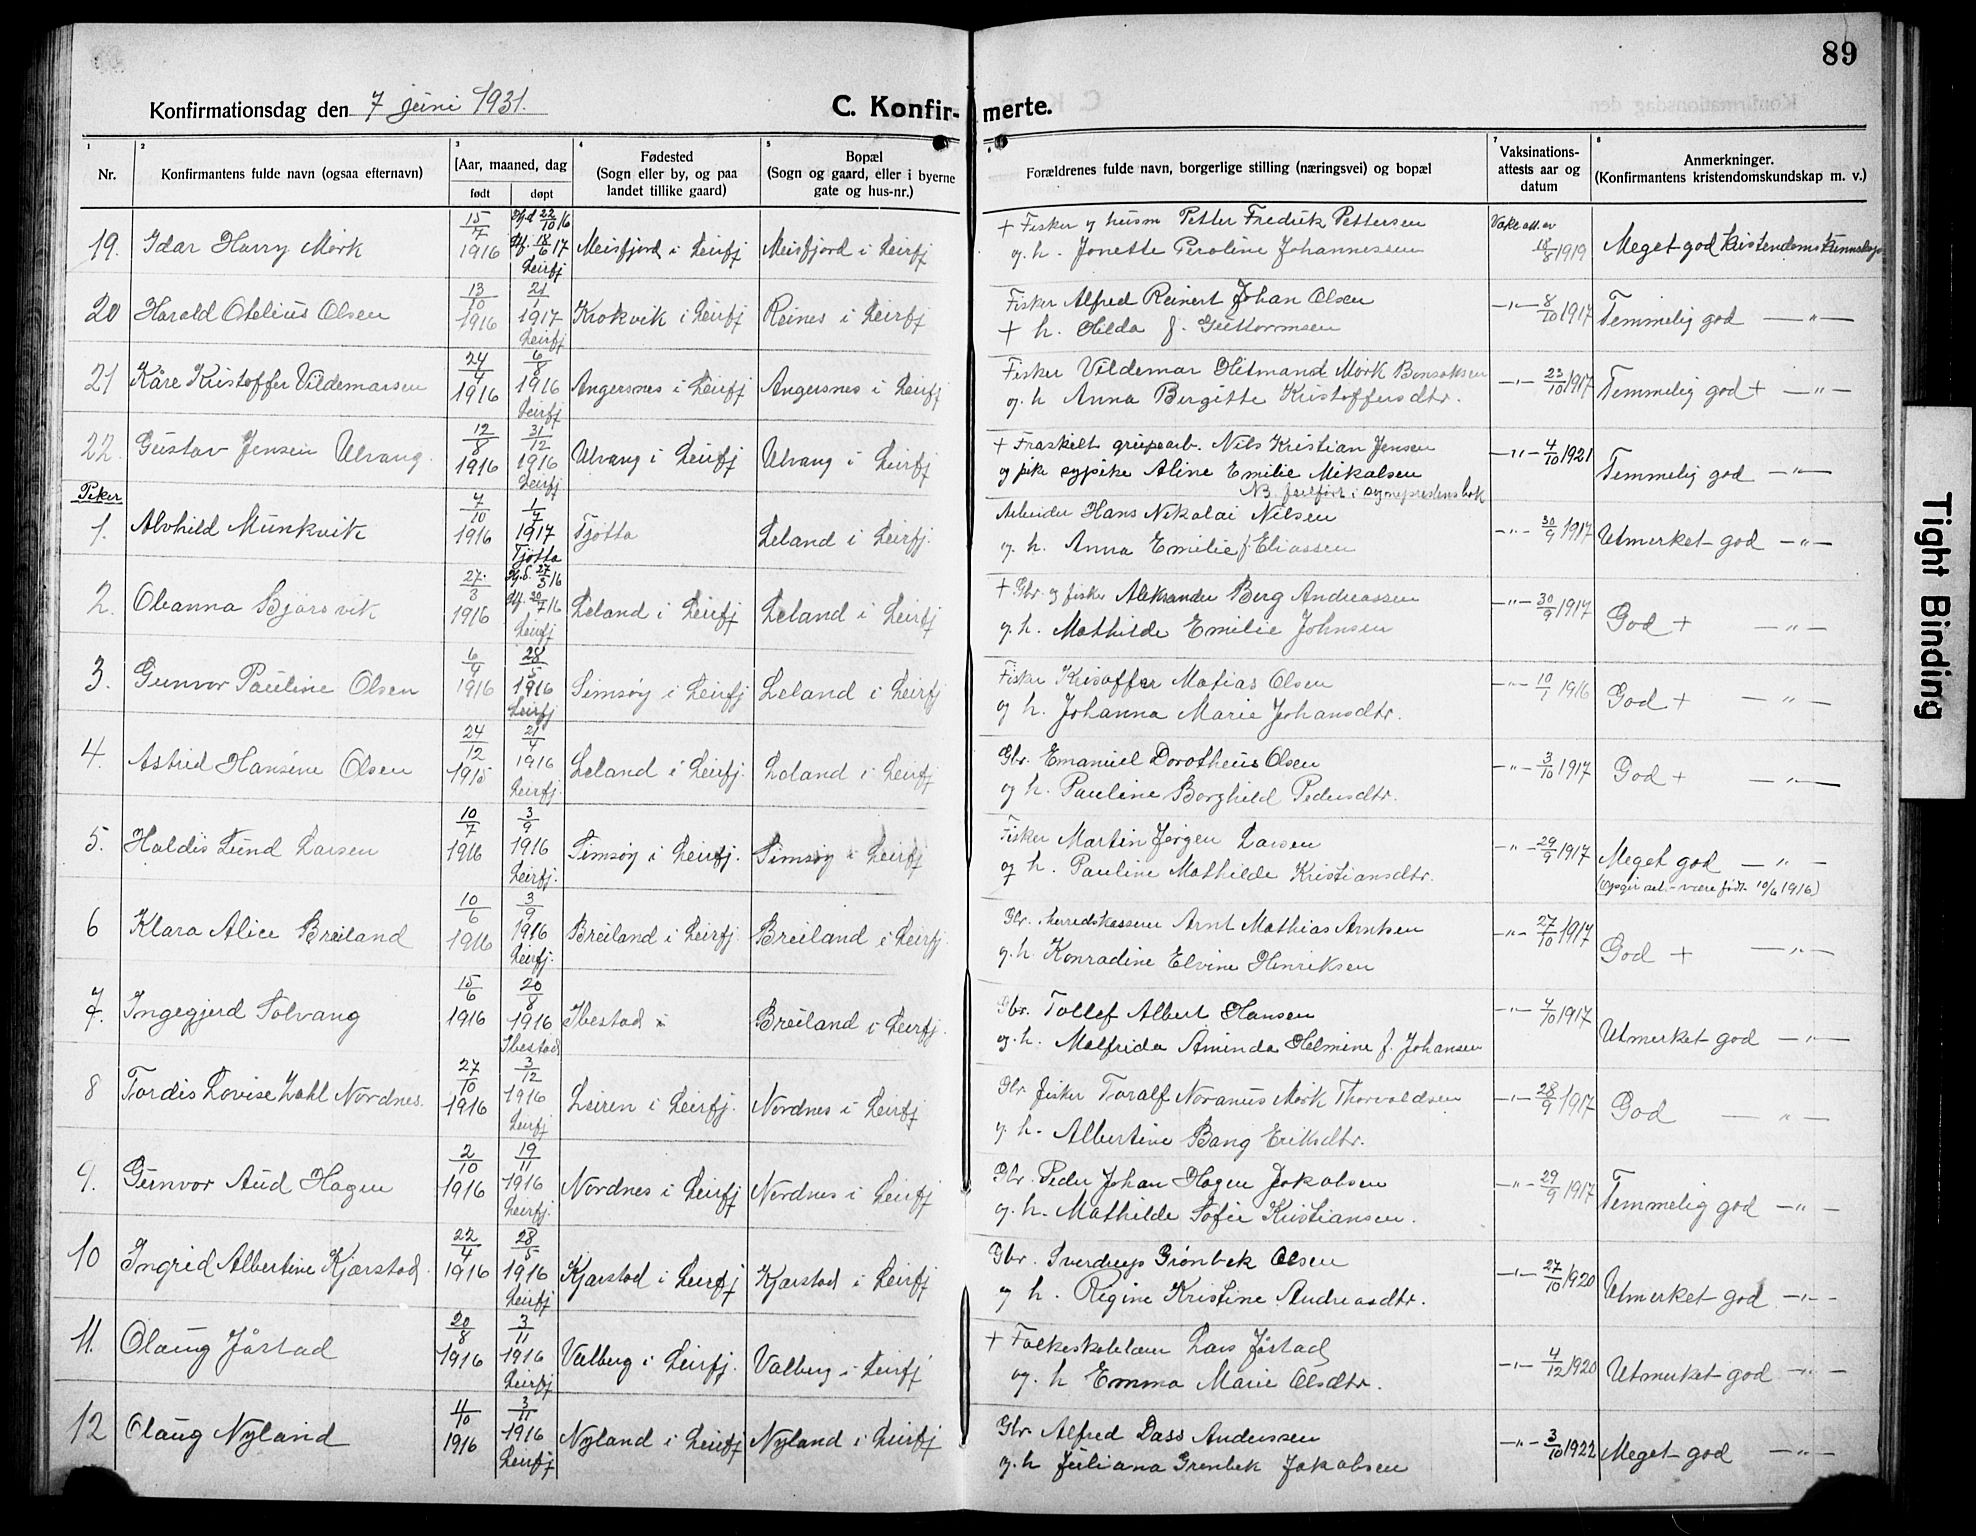 89
Konfirmationsdag den 7 juni 1931.
C. Konfir- merte.
1 2 3 4 5 6 7 8
Nr.
Konfirmantens fulde navn (ogsaa efternavn)
[Aar, maaned, dag
født døpt
Fødested
(Sogn eller by, og paa
landet tillike gaard)
Bopæl
(Sogn og gaard, eller i byerne
gate og hus-nr.)
Forældrenes fulde navn, borgerlige stilling (næringsvei) og bopæl
Vaksinations-
attests aar og
datum
Anmerkninger.
(Konfirmantens kristendomskundskap m. v.)
19. Idar Harry Mørk 15/7 1916 22/10 16 18/6 17 Leirfj Meisfjord i Leirfj Meisfjord i Leirfj
+ Fisker og husm Petter Fredrik Pettersen
og h. Jonette Peroline Johannessen
Vaks.att. av 18/8 1919 Meget god Kristendomskunnskap
20 Harald Otelius Olsen 13/10 1916 21/1 1917 Leirfj Krokvik i Leirfj Reines i Leirfj
Fisker Alfred Reinert Johan Olsen
+ h. Hilda f. Guttormsen
—"— 8/10 1917 Temmelig god —"—
21 Kåre Kristoffer Vildemarsen 24/4 1916 6/8 1916 Leirfj Angersnes i Leirfj Angersnes i Leirfj
Fisker Vildemar Hitmand Mørk Bensaksen
og h Anna Bergitte Kristoffersdtr.
—"— 23/10 1917 Temmelig god + —"—
22. Gustav Jensen Ulvang. 12/8 1916 31/12 1916 Leirfj Ulvang i Leirfj Ulvang i Leirfj
+ Fraskilt grubearb. Nils Kristian Jensen
og pike sypike Aline Emilie Mikalsen
NB. feilført i sogneprestens bok
—"— 4/10 1921 Temmelig god —"—
Piker
1. Alvhild Munkvik 7/10 1916 1/7 1917 Tjøtta Tjøtta Leland i Leirfj.
Arbeider Hans Nikolai Nilsen
og h. Anna Emilie f. Eliassen
—"— 30/9 1917 Utmerket god —"—
2. Oleanna Bjørsvik 27/3 1916 27/3 16 30/7 16 Leirfj Leland i Leirfj Leland i Leirfj
+ Gbr og fisker Aleksander Berg Andreassen
og h. Mathilde Emilie Johnsen
—"— 30/9 1917 God + —"—
3. Gunvor Pauline Olsen 6/4 1916 28/5 1916 Leirfj Simsøy i Leirfj Leland i Leirfj
Fisker Krisoffer Matias Olsen
og h. Johanna Marie Johansdtr.
—"— 10/1 1916 God + —"—
4. Astrid Hansine Olsen 24/12 1915 21/4 1916 Leirfj. Leland i Leirfj. Leland i Leirfj
Gbr. Emanuel Dorotheus Olsen
og h. Pauline Borghild Pedersdtr.
—"— 3/10 1917 God + —"—
5. Haldis Lund Larsen 10/7 1916 3/9 1916 Leirfj. Simsøy i Leirfj. Simsøy i Leirfj
Fisker Martin Jørgen Larsen
og h. Pauline Mathilde Kristiansdtr.
—"— 29/9 1917 Meget god —"—
(Opgir selv være født 10/6 1916)
6 Klara Alice Breiland 10/6 1916 3/9 1916 Leirfj. Breiland i Leirfj. Breiland i Leirfj.
Gbr. herredskasserer Arnt Mathias Arntsen
og h. Konradine Elvine Henriksen
—"— 27/10 1917 God + —"—
7. Ingegjerd Solvang 15/6 1916 20/8 1916 Ibestad Ibestad i Breiland i Leirfj.
Gbr. Tollef Albert Hansen
og h. Malfrida Aminda Helmine f. Johansen
—"— 4/10 1917 Utmerket god —"—
8 Tordis Lovise Zahl Nordnes. 27/10 1916 3/12 1916 Leirfj Leiren i Leirfj. Nordnes i Leirfj
Gbr. fisker Toralf Noranus Mørk Thorvaldsen
og h. Albertine Bang Eriksdtr.
—"— 28/9 1917 God —"—
9. Gunvor Aud Hagen 2/10 1916 19/11 1916 Leirfj. Nordnes i Leirfj Nordnes i Leirfj
Gbr. Peder Johan Hagen Jakobsen
og h. Mathilde Sofie Kristiansen.
—"— 29/9 1917 Temmelig god —"—
10 Ingrid Albertine Kjærstad. 22/4 1916 28/5 1916 Leirfj Kjærstad i Leirfj Kjærstad i Leirfj
Gbr. Sverdrup Grønbek Olsen
og h. Regine Kristine Andreasdtr.
—"— 27/10 1920 Utmerket god —"—
11. Olaug Jåstad 20/8 1916 3/11 1916 Leirfj Valberg i Leirfj. Valberg i Leirfj
+ Folkeskolelærer Lars Jåstad
og h Emma Marie Olsdtr.
—"— 4/12 1920 Utmerket god —"—
12 Olaug Nyland 11/10 1916 3/11 1916 Leirfj Nyland i Leirfj Nyland i Leirfj
Gbr. Alfred Dass Anderssen
og h Juliana Grønbek Jakobsen
—"— 3/10 1922 Meget god —"—
Tight Binding